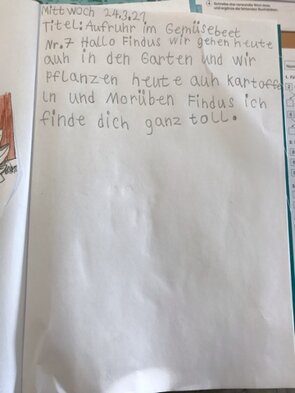 Mittwoch 24.3.21
Titel: Aufruhr im Gemüsebeet
Nr. 7 Hallo Findus wir gehen heute
auh in den Garten und wir
Pflanzen heute auh Kartoffe
ln und Morüben Findus ich
finde dich ganz toll.